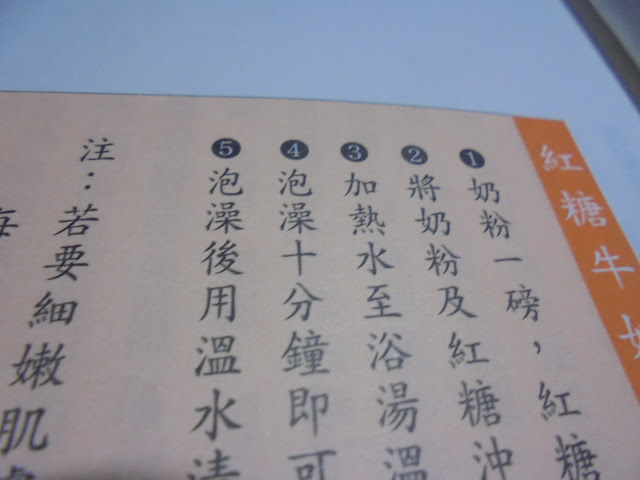 紅糖牛奶
❶奶粉一磅，紅糖
❷將奶粉及紅糖沖
❸加熱水至浴湯溫
❹泡澡十分鐘即可
❺泡澡後用溫水清
注：若要細嫩肌
每